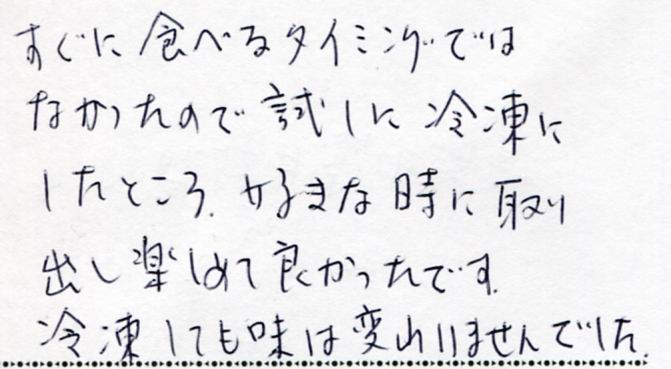 すぐに食べるタイミングでは
なかったので試しに冷凍に
したところ、好きな時に取り
出し楽しめて良かったです。
冷凍しても味は変わりませんでした。